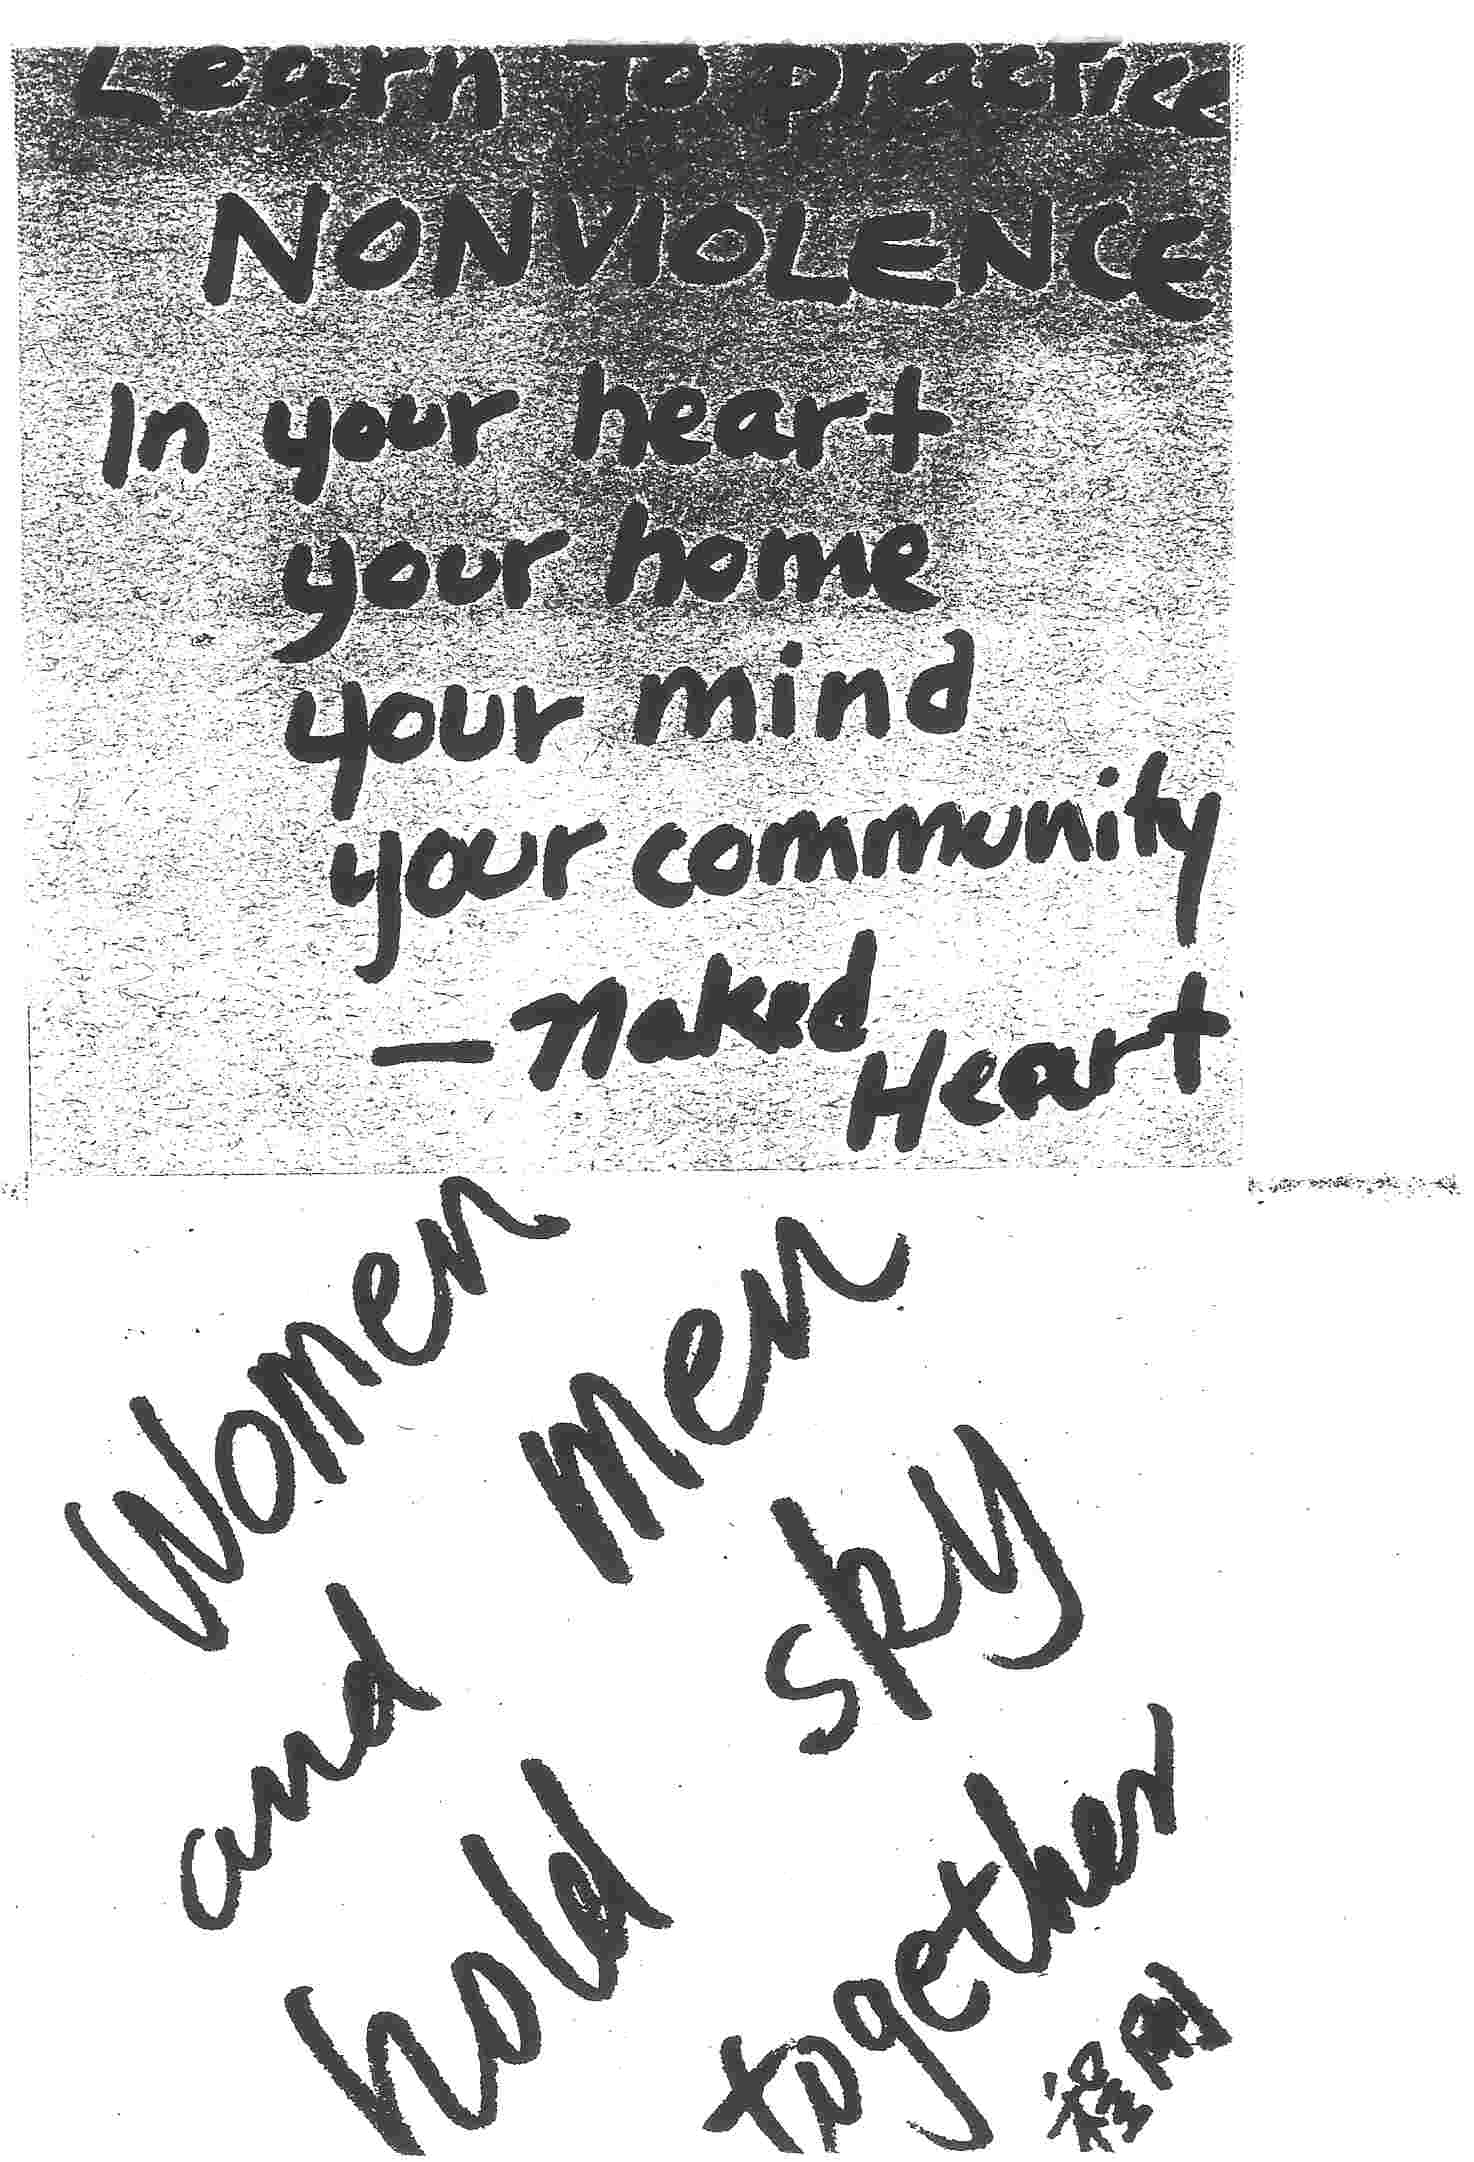 Learn To practice
NONVIOLENCE
In your heart
your home
your mind
your community
— Naked
Heart
Women
and men
hold sky
together
程刚